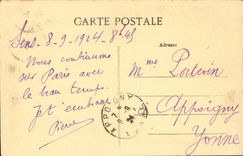 CARTE POSTALE
Sens. 8-9-1924. 8h45
Adresse
Nous continuons
sur Paris avec
le beau temps.
Jet'embrasse
Pierre
Mme Poitevin
Appoigny
Yonne
APPOIGNY